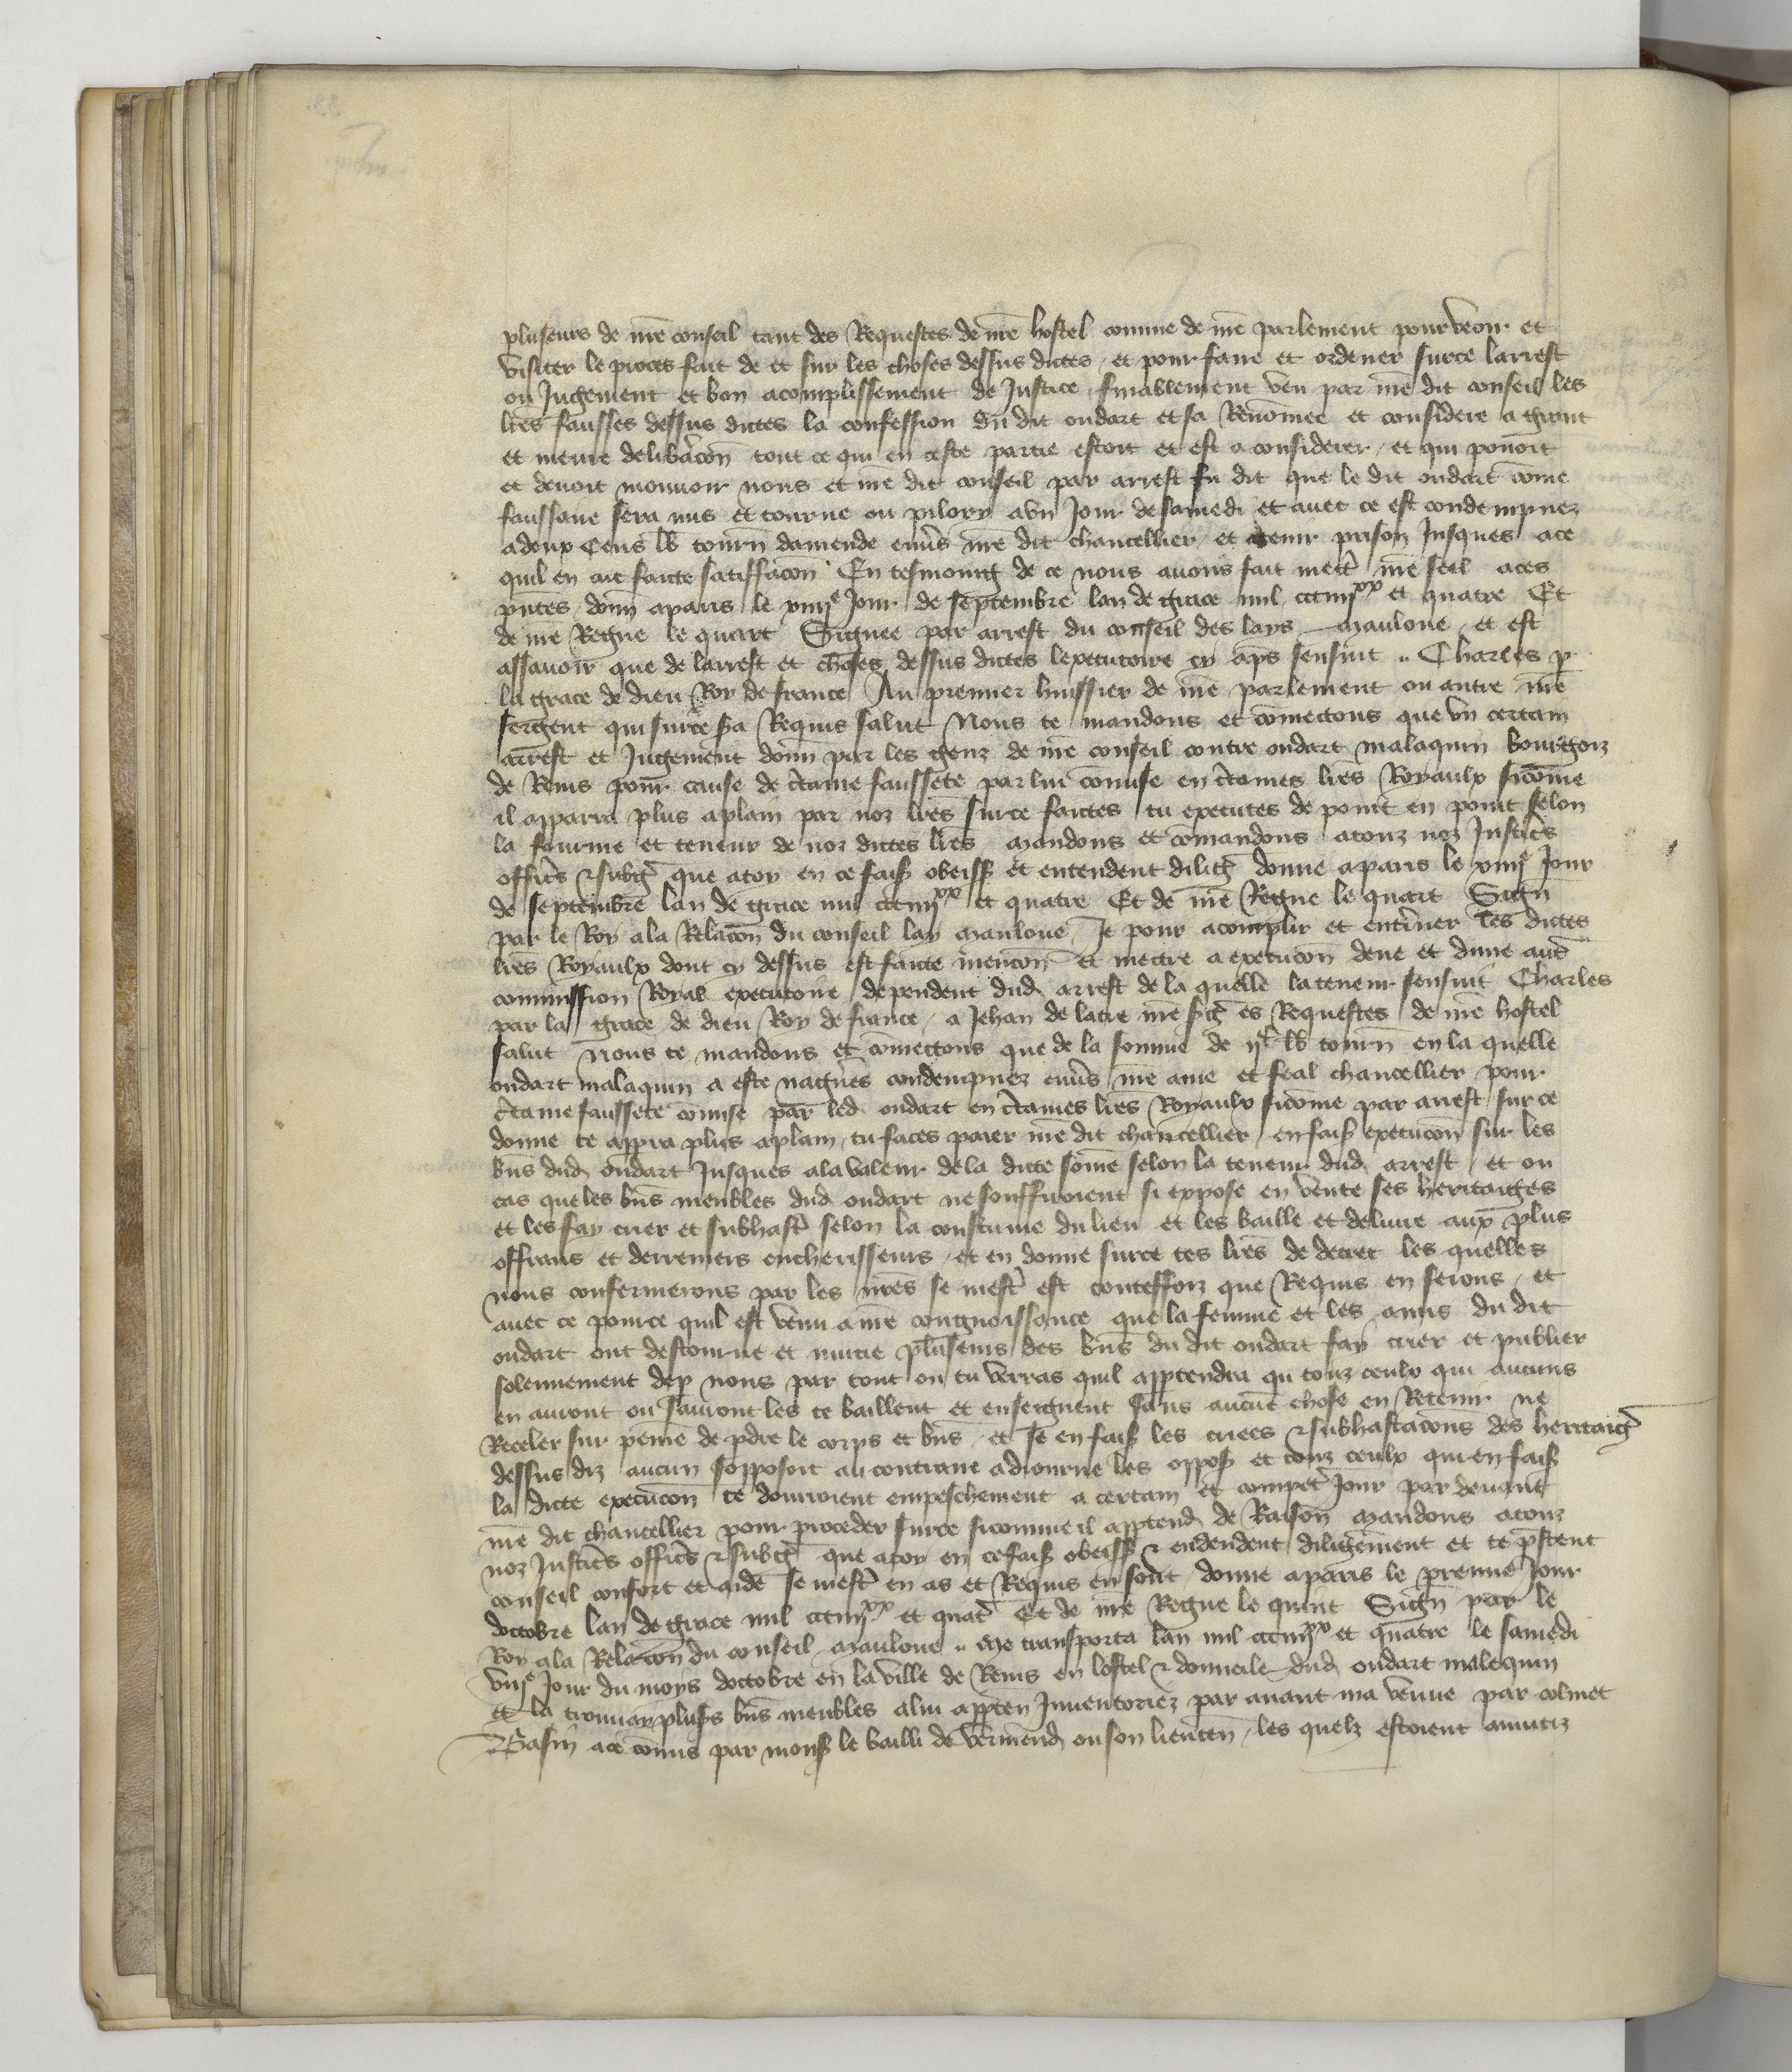 pluseurs de nre conseil tant des Requestes de nre hostel comme de nre parlement pour veoir et
visiter le proces fait de et sur les choses dessus dictes / et pour faire et ordener surce larrest
ou Jugement et bon acomplissement de Justice / finablement veu par nre dit conseil les
lres fausses dessus dictes la confession du dit oudart et sa Renommee et considere a grant
et meure deliberacon tout ce qui en ceste partie estoit et est a considerer / et qui pouoit
et deuoit mouuoir nous et nre dit conseil par arrest fu dit que le dit oudart come
faussaire sera mis et tourne ou pilory a vn Jour de samedi et auec ce est condempnez
a deux Cens lb tourn damende enuers nre dit chancellier et a tenir prison Jusques ace
quil en ait faicte satiffacon En tesmoing de ce nous auons fait mectr nre seel aces
pntes donn aparis le xiiije Jour de septembre lan de grace mil ccciiijxx et quatre Et
de nre Regne le quart Signee par arrest du conseil des lays Mauloue / et est
assauoir que de larrest et choses dessus dictes lexecutoire cy aps sensuit .. Charles p
la grace de dieu Roy de france Au premier huissier de nre parlement ou autre nre
sergent qui surce sa Requis salut Nous te mandons et comectons que vn certain
arrest et Jugement donn par les genz de nre conseil contre oudart malaquin bourgoiz
de Reins pour cause de ctaine faussete par lui comise en ctaines lres Royaulx sicome
il apparra plus aplain par noz lres surce faictes tu executes de point en point selon
la fourme et teneur de noz dictes lres mandons et comandons atouz noz Justicrs
officrs & subg que atoy en ce fais obeiss et entendent dilig donne aparis le xiiije Jour
de septembre lan de grace mil ccciiijxx et quatre Et de nre Regne le quart Sign
par le Roy ala Relacon du conseil lay Mauloue Je pour acomplir et entiner les dictes
lres Royaulx dont cy dessus est faicte mencon et mectre a execucon deue et dune autr
commission Royal executoire dependent dud arrest de la quelle la teneur sensuit Charles
par la grace de dieu Roy de france / a Jehan de latre nre sg es Requestes de nre hostel
salut Nous te mandons et comectons que de la somme de ijc lb tourn en la quelle
oudart malaquin a este nagures condempnez enuers nre ame et feal chancellier pour
ctaine faussete comise par led oudart en ctaines lres Royaulx sicome par arrest sur ce
donne te apprra plus aplain tu faces paier nre dit chancellier / en fais execucon sur les
bns dud oudart Jusques ala valeur de la dicte some selon la teneur dud arrest / et ou
cas que les bns meubles dud oudart ne souffiroient si expose en vente ses heritaiges
et les fay crier et subhastr selon la coustume du lieu et les baille et deliure aux plus
offrans et derreniers encherisseurs / et en donne surce tes lres de decret les quelles
nous confermerons par les nres se mestr est touteffoiz que Requis en serons / et
auec ce pource quil est venu a nre congnoissance que la femme et les amis du dit
oudart ont destourne et mucie pluseurs des bns du dit oudart fay crier et publier
solennement dep nous par tout ou tu verras quil apptendra qu touz ceulx qui aucuns
en auront ou sauront les te baillent et enseignent sans aucune chose en Retenir ne
Receler sur peine de pdre le corps et bns / et se en fais les criees & subhastacons des heritaig
dessus diz aucun sopposoit au contraire adiourne les oppos et touz ceulx qui en fais
la dicte execucon te donroient empeschement a certain et compet Jour par deuant
nre dit chancellier pour proceder surce sicomme il apptend de Raison mandons atouz
noz Justicrs officrs & subg que atoy en cefais obeiss & endendent diligemment et te pstent
conseil confort et aide se mestr en as et Requis en sont donne aparis le premier Jour
doctobre lan de grace mil ccciiijxx et quatr Et de nre Regne le quint Sign par le
Roy ala Relacon du conseil Mauloue .. Me transporta lan mil ccciiijxx et quatre le samedi
viije Jour du moys doctobre en la ville de Reins en lostel & domicile dud oudart malequin
et la trouuay pluss bns meubles alui apten Jnuentoriez par auant ma venue par colinet
Basin ace comis par mons le bailli de vermend ou son lieuten / les quelz estoient amuciz